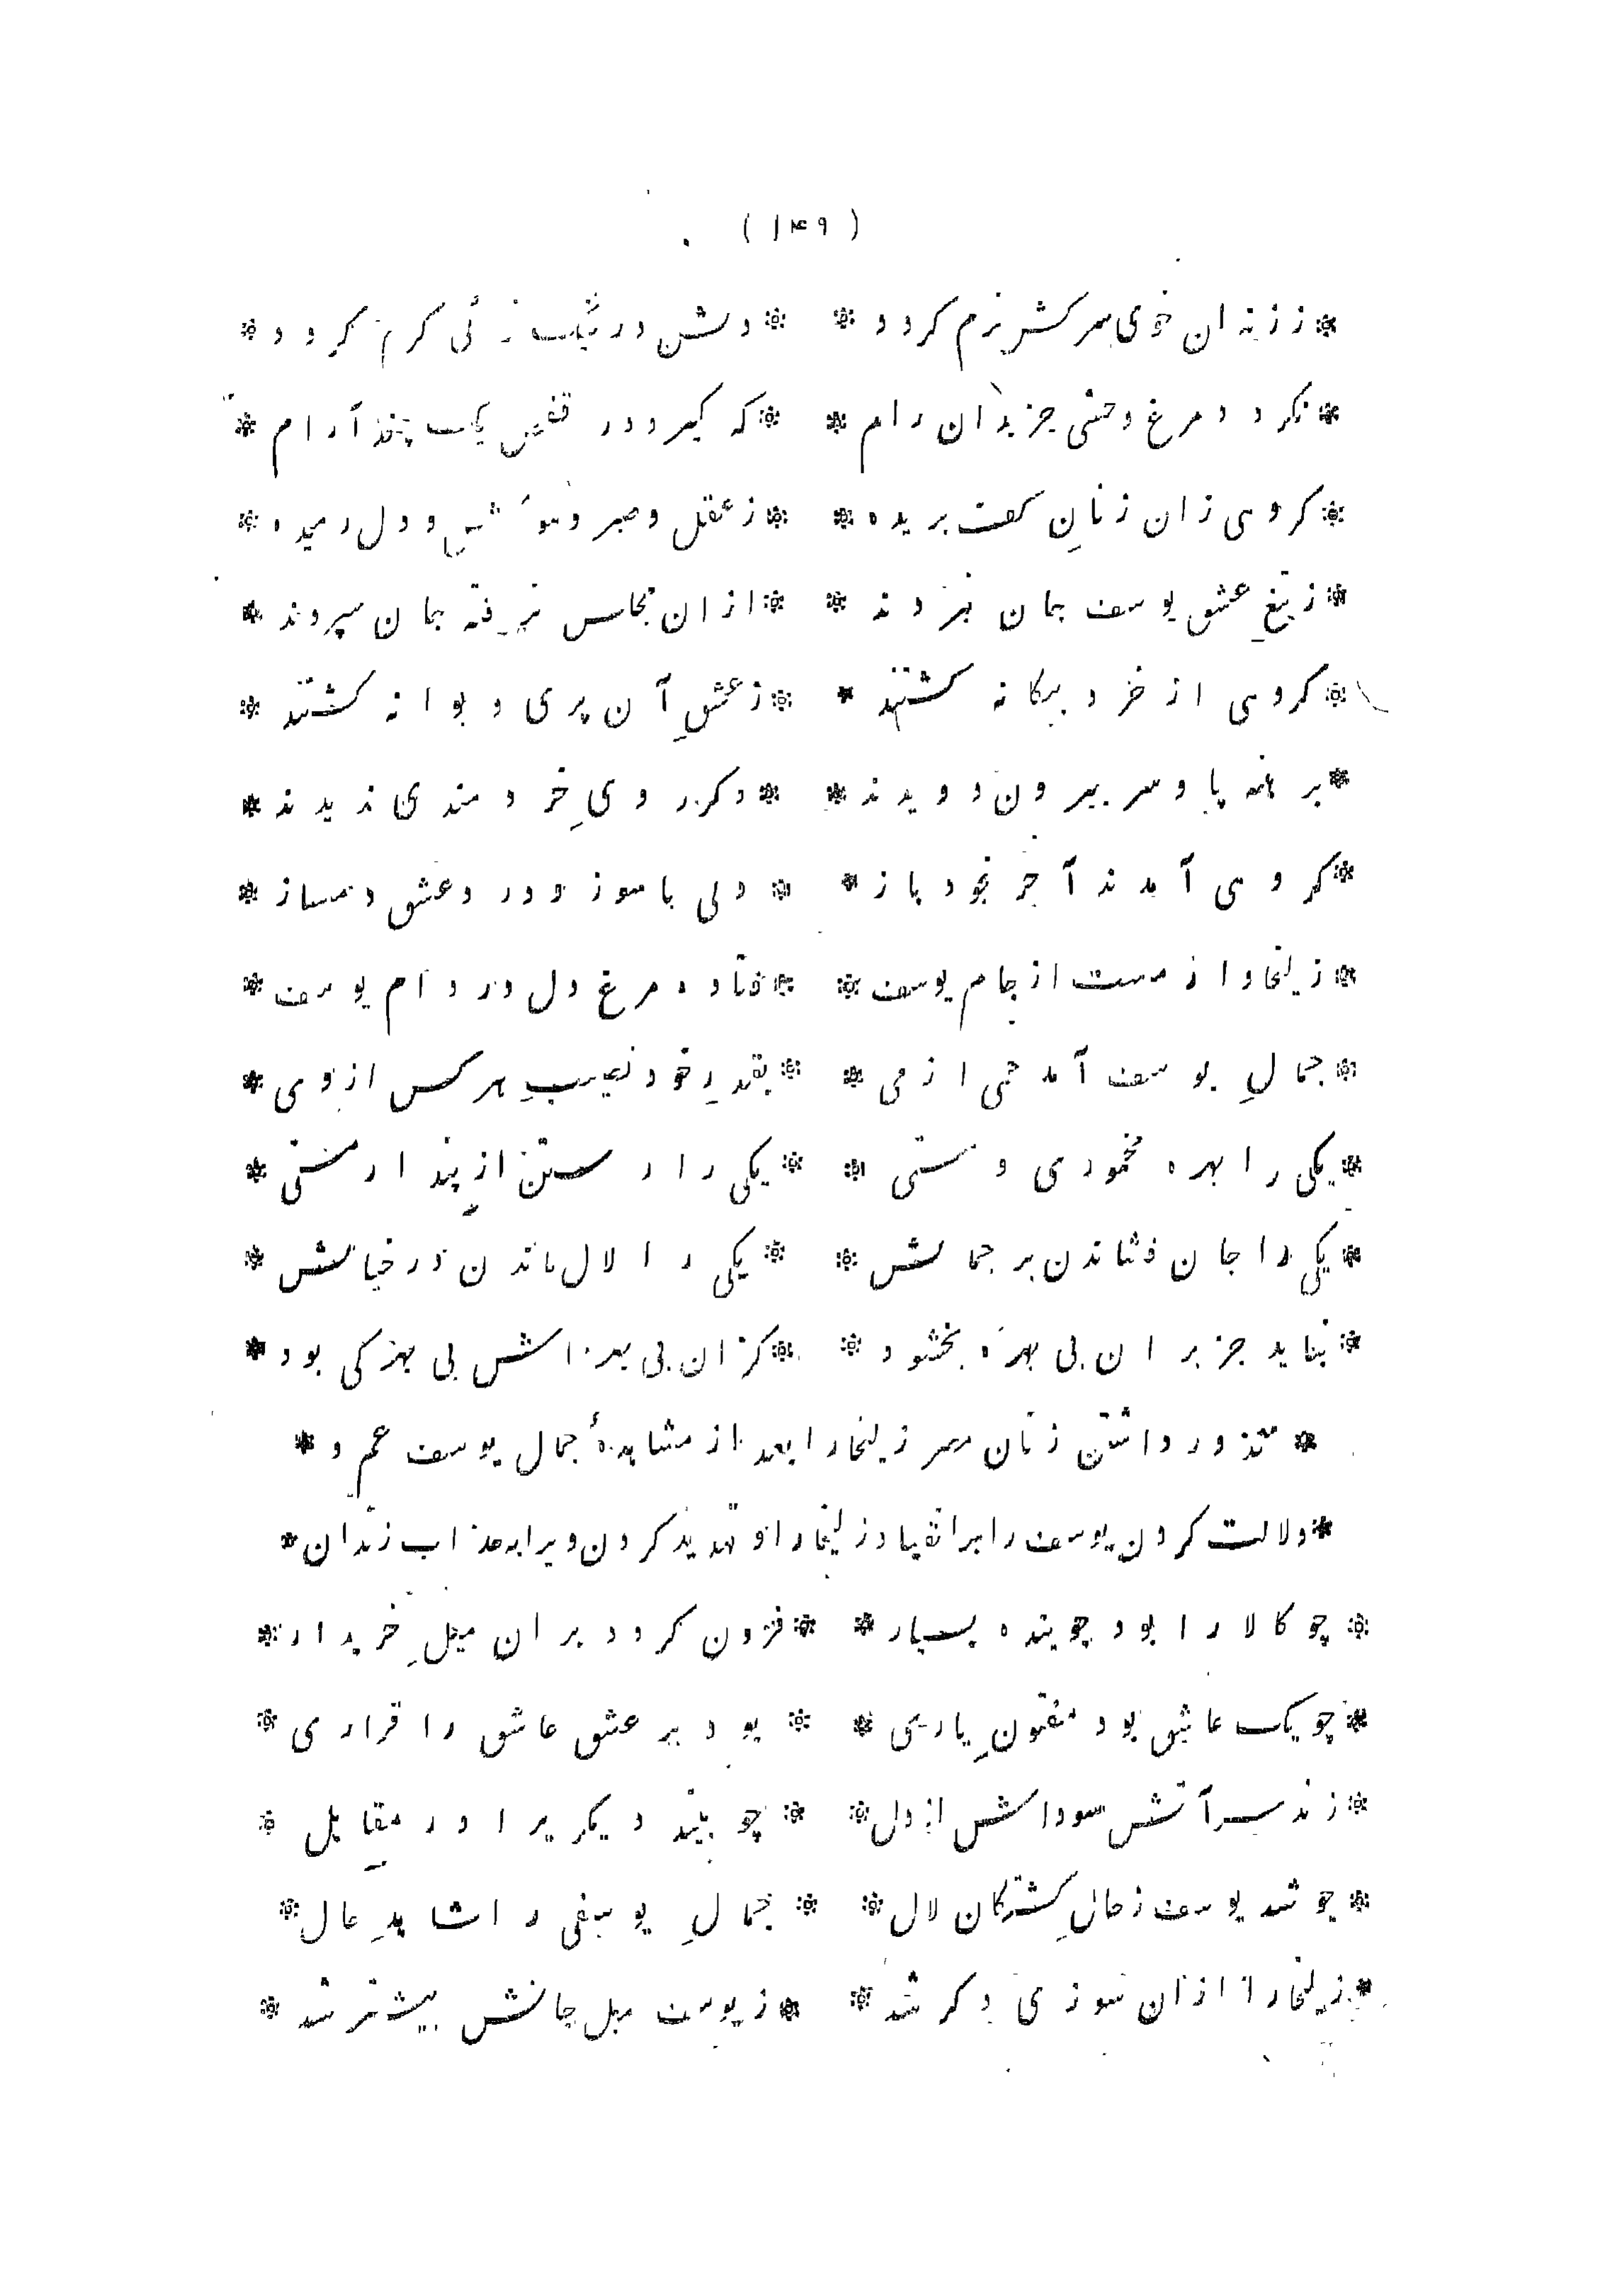 ( ۱۴۹ )
* ز زندان خوی سرکش نرم کردد * * دلش در نیک خوئی کرم کردد *
* نکردد مرغ وحشی جز بدان رام * که کیرد در قفس یک چند آرام *
* کروهی زان زنانِ کف بریده * * ز عقل و صبر و هوش و دل رمیده *
* ز تیغِ عشق یوسف جان نبردند * * ازان مجلس نرفته جان سپردند *
* کروهی از خرد بیکانه کشتند * * ز عشقِ آن پری دیوانه کشتند *
* برهنه پا و سر بیرون دویدند * * دکر روی خردمندی ندیدند *
* کروهی آمدند آخر بخود باز * * ولی با سوز و درد عشق دمساز *
* زلیخا وار مست از جام یوسف * * فتاده مرغ دل در دام یوسف *
* جمالِ یوسف آمد خمی از می * * بقدرِ خود نصیبِ هر کس از وی *
* یکی را بهره مخموری و مستی * * یکی را رستن از پندار هستی *
* یکی را جان فشاندن بر جمالش * * یکی را لال ماندن در خیالش *
* نباید جز بر ان بی بهره بخشود * * کزان بی بهره اش بی بهرکی بود *
* معذور داشتن زنان مصر زلیخا را بعد از مشاهدهٔ جمال یوسف عم و *
* دلالت کردن یوسف را بر انقیاد زلیخا را و تهدید کردن ویرا به عذاب زندان *
* چو کالا را بود جوینده بسیار * * فزون کردد بر ان میلِ خریدار *
* چو یک عاشق بود مفتونِ یاری * * بود بر عشق عاشق را قراری *
* زند سر آتش سوداش از دل * * چو بیند دیکریرا در مقابل *
* چو شد یوسف ز حالِ کشتکان لال * * جمالِ یوسفی را شاهدِ حال *
* زلیخا را ازان سوزی دکر شد * * ز یوسف میل جانش بیشتر شد *